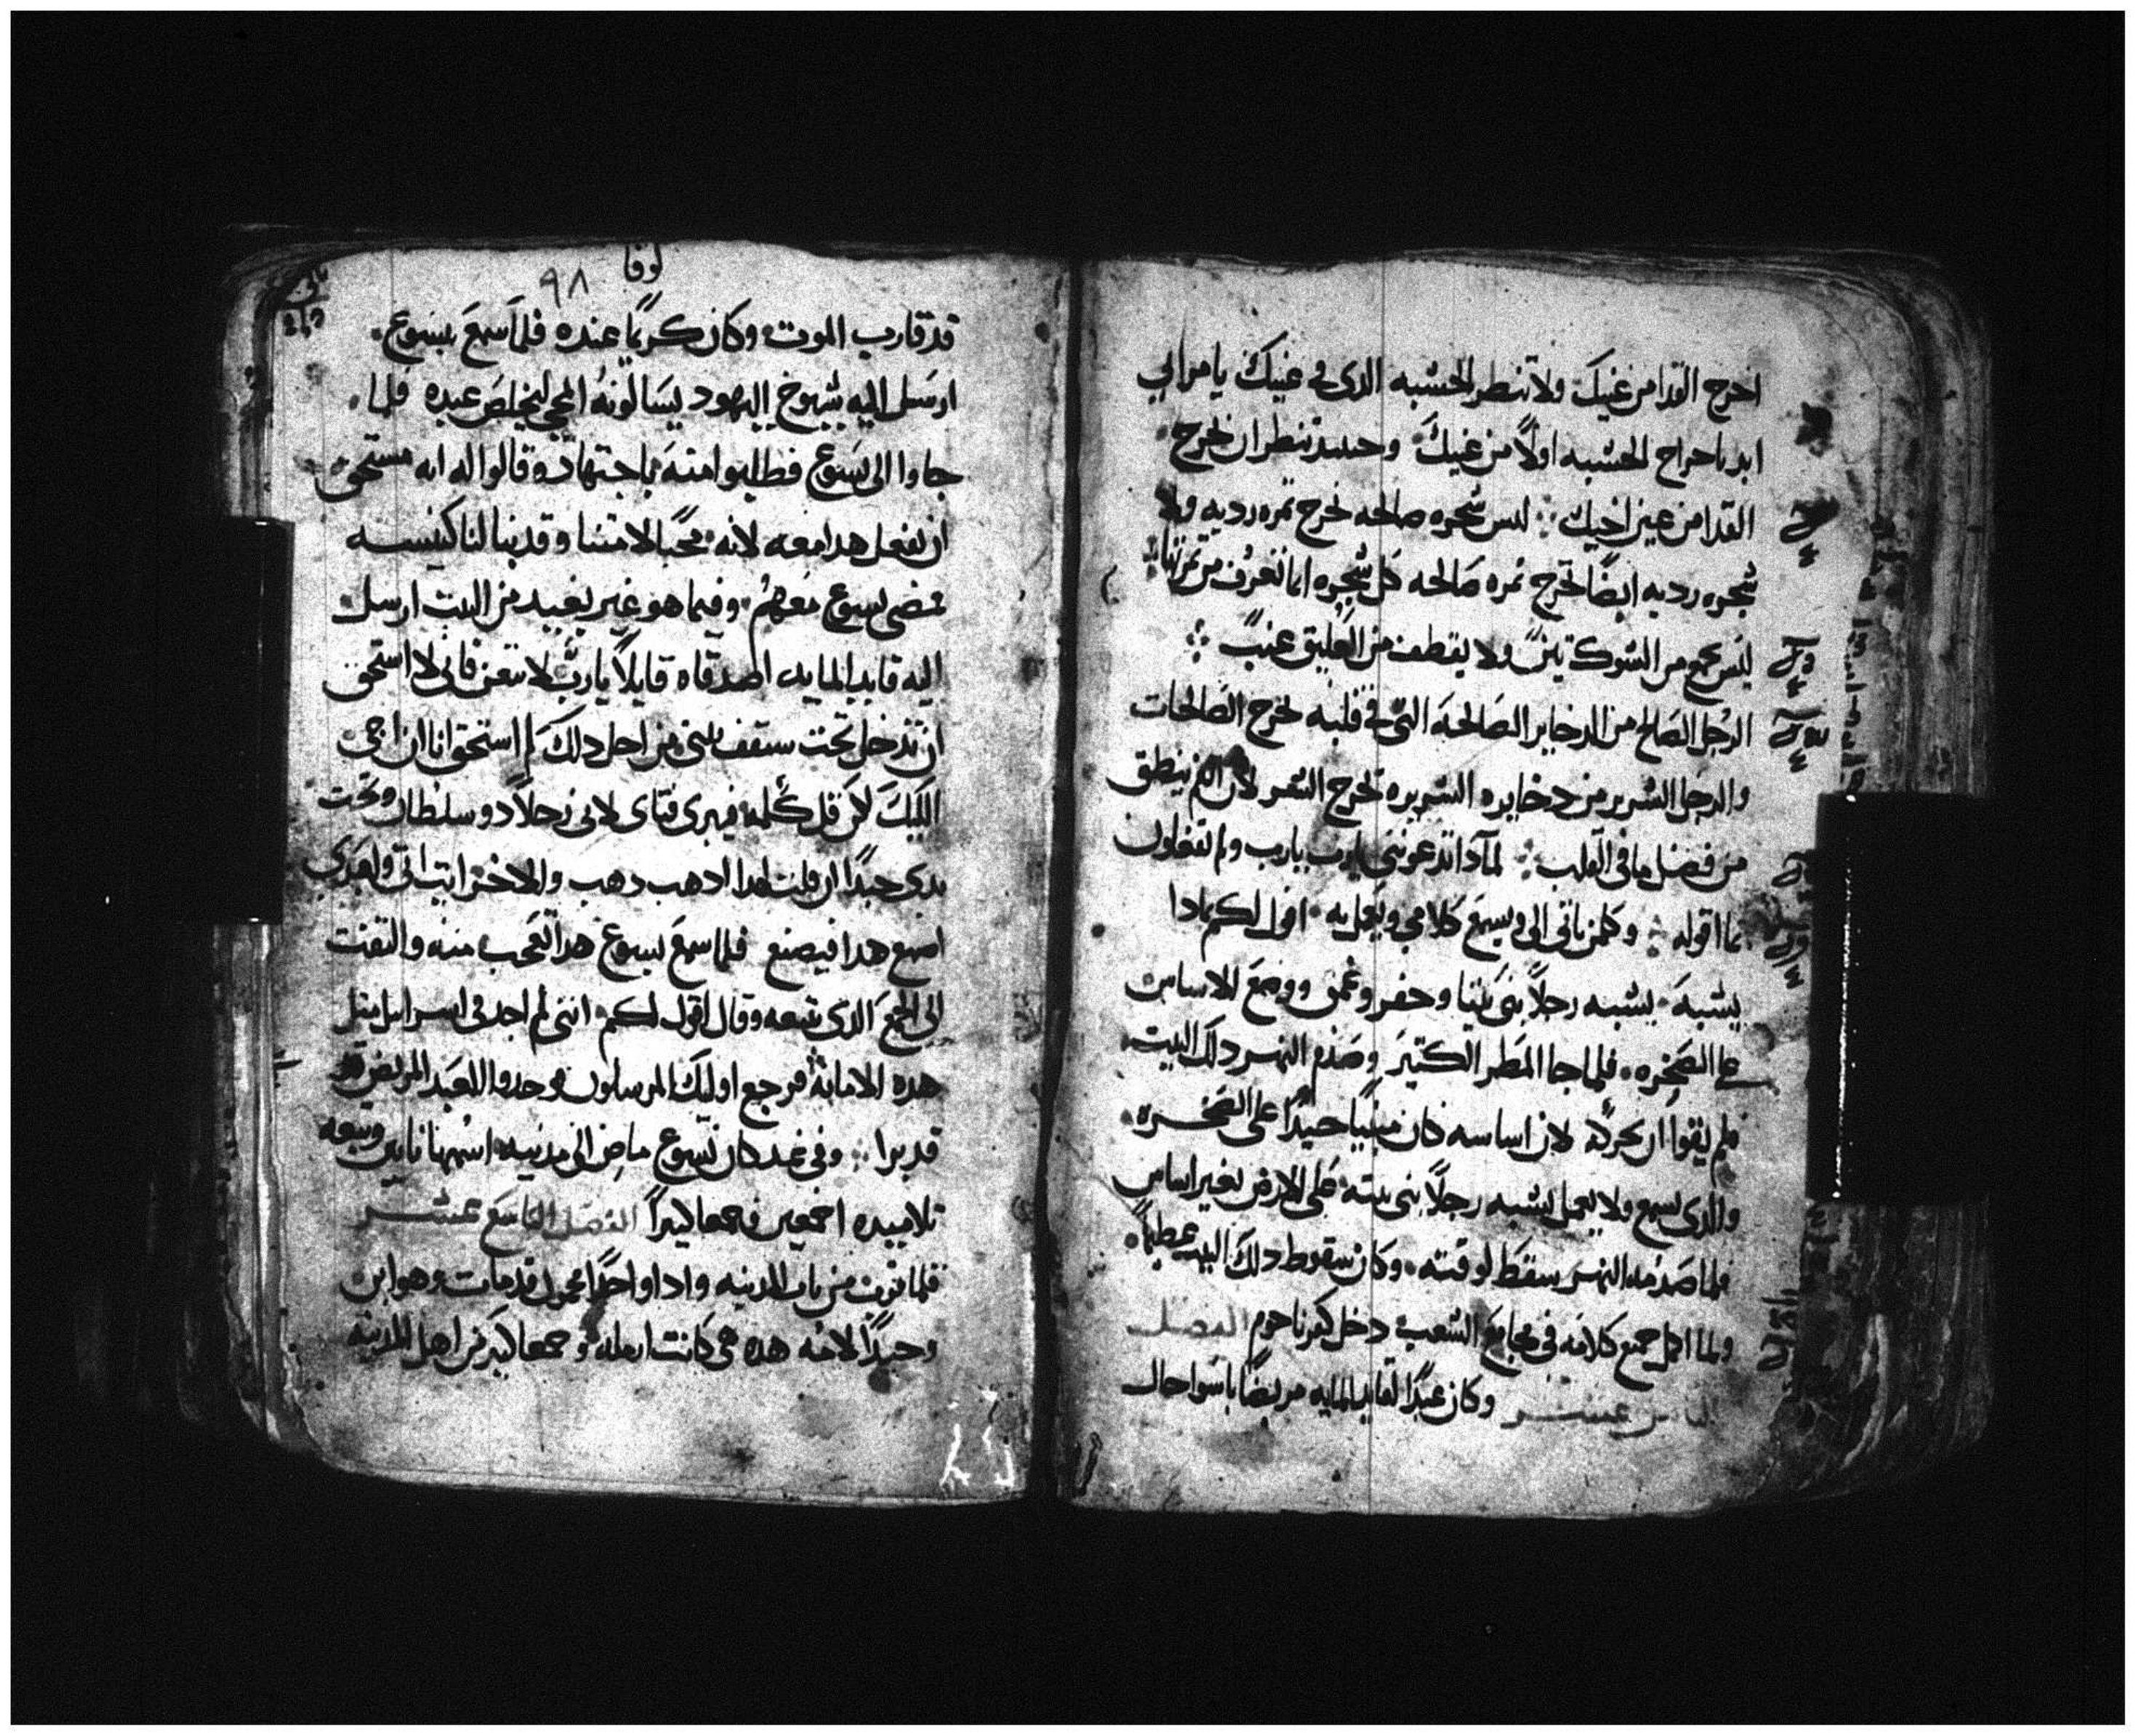 اخرج القدا من عينك ولا تنظر الخشبه الذى فى عينك يا مرايى
ابدا باخراج الخشبه اولًا من عينك وحينيذ تنظر ان تخرج
القدا من عين اخيك ليس شجره صالحه تخرج ثمره رديه ولا
شجره رديه ايضًا تخرج ثمره صالحه كل شجره انما تعرف من ثمرتها
ليس يجمع من الشوك تين ولا يقطف من العليق عنب
الرجل الصالح من الدخاير الصالحه التى فى قلبه يخرج الصالحات
والرجل الشرير من دخايره الشريره يخرج الشر لان الفم ينطق
من فضل ما فى القلب لمادا تدعوننى يارب يارب ولم تفعلون
ما اقوله وكلمن ياتى الى ويسمع كلامى ويعمل به اقول لكم بمادا
يشبه يشبه رجلًا بنى بيتا وحفر وعمق ووضع الاساس
على الصخره فلما جا المطر الكتير وصدم النهر دلك البيت
فلم يقوا ان يحركه لان اساسه كان مبنيًا جيدًا على الصخره
والدى يسمع ولا يعمل يشبه رجلًا بنى بيته على الارض بغير اساس
فلما صدمه النهر سقط لوقته وكان سقوط دلك البيت عظيمًا
ولما اكمل جميع كلامه فى مجامع الشعب دخل كفرناحوم الفصل
الثامن عشر وكان عبدًا لقايد المايه مريضًا باسوا حال
لوقا
٩٨
قد قارب الموت وكان كريمًا عنده فلما سمع بيسوع
ارسل اليه شيوخ اليهود يسالونه المجى ليخلص عبده فلما
جاوا الى يسوع فطلبوا منه باجتهاد وقالوا له انه مستحق
ان تفعل هدا معه لانه محبًا لامتنا وقد بنا لنا كنيسه
فمضى يسوع معهم وفيما هو غير بعيد من البيت ارسل
اليه قايد المايه اصدقاه قايلًا يارب لا تتعن فانى لا استحق
ان تدخل تحت سقف بيتى من اجل دلك لم استحق انا ان اجى
اليك لكن قل كلمه فيبرى فتاى لانى رجلًا دو سلطان وتحت
يدى جندًا ان قلت لهدا ادهب دهب والاخر ايت اتى ولعبدى
اصنع هدا فيصنع فلما سمع يسوع هدا تعجب منه والتفت
الى الجمع الدى تبعه وقال اقول لكم اننى لم اجد فى اسراييل مثل
هده الامانة فرجع اوليك المرسلون فوجدوا العبد المريض قد
قد برا وفى غد كان يسوع ماضٍ الى مدينه اسمها نايين وتبعه
تلاميده اجمعين وجمعا كبيرًا الفصل التاسع عشر
فلما قرب من باب المدينه وادا واحدًا محمول قد مات وهو ابن
وحيدًا لامه هده هى كانت ارمله وجمعا كبير من اهل المدينه